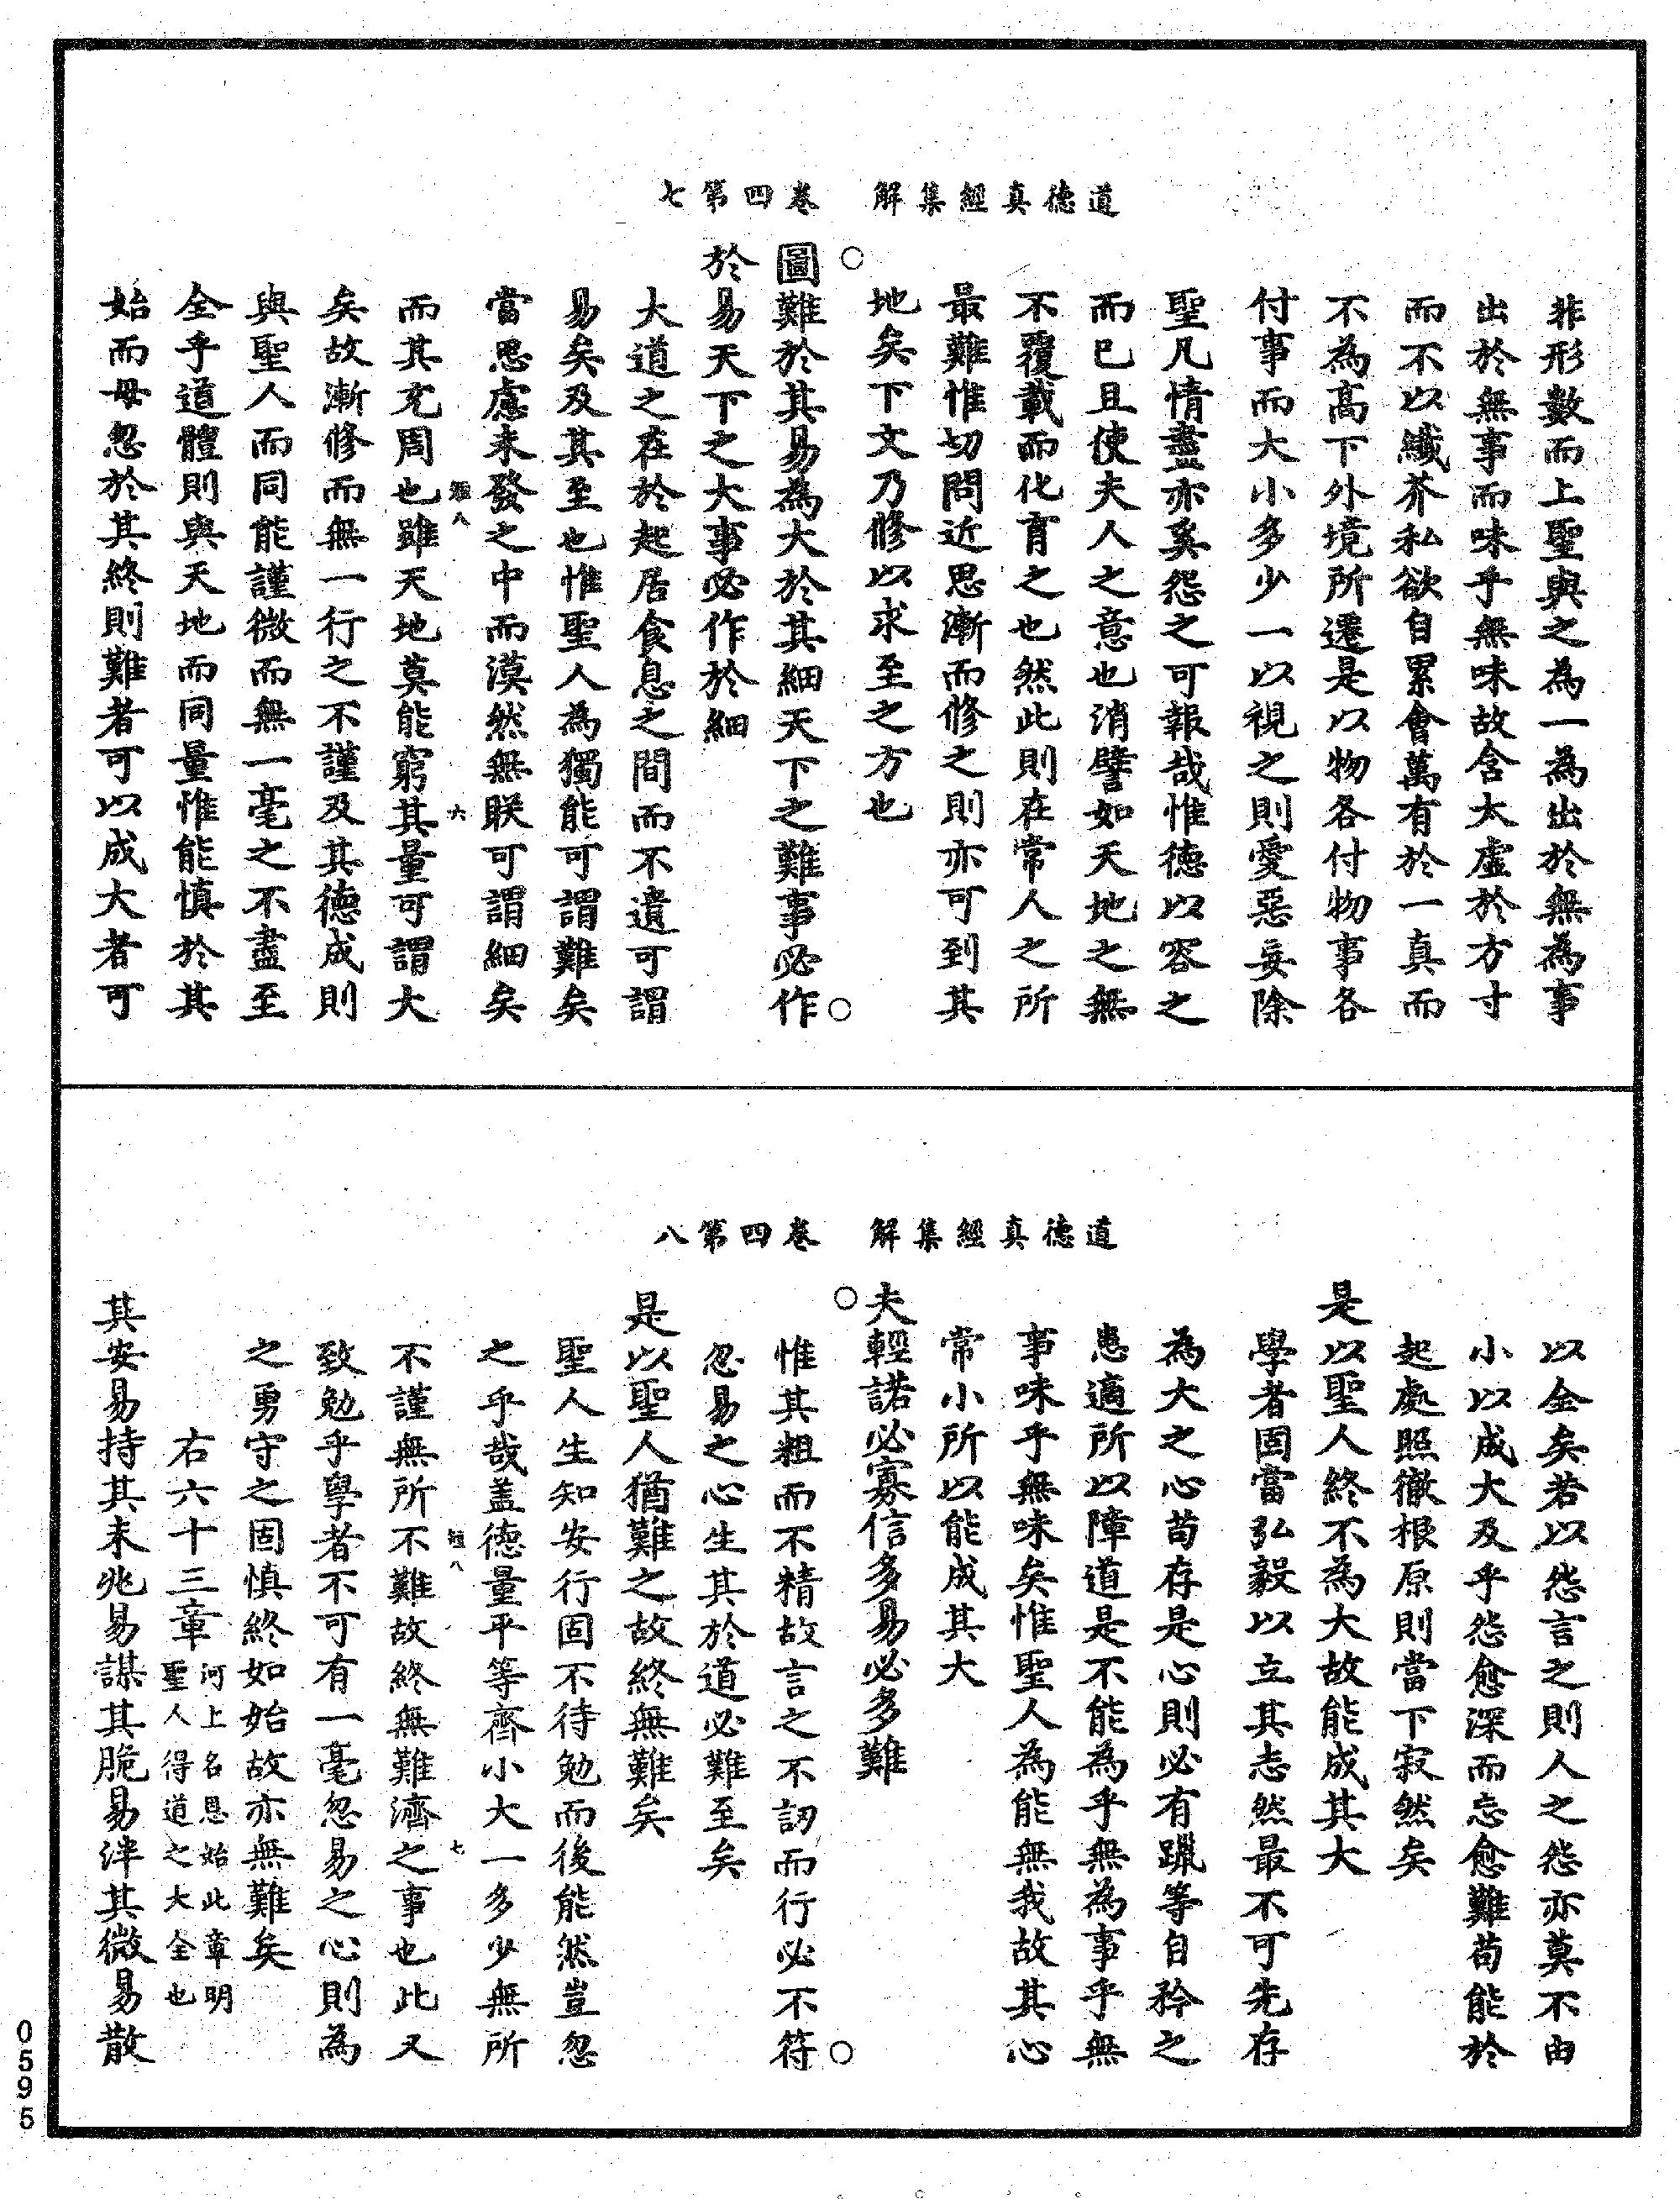 道德真經集解　卷四第七
非形數而上聖與之為一為出於無為事
出於無事而味乎無味故含太虛於方寸
而不以纖芥私欲自累會萬有於一真而
不為高下外境所遷是以物各付物事各
付事而大小多少一以視之則愛惡妄除
聖凡情盡亦奚怨之可報哉惟德以容之
而已且使夫人之意也消譬如天地之無
不覆載而化育之也然此則在常人之所
最難惟切問近思漸而修之則亦可到其
地矣下文乃修以求至之方也
圖難於其易為大於其細天下之難事必作
於易天下之大事必作於細
大道之在於起居食息之間而不遺可謂
易矣及其至也惟聖人為獨能可謂難矣
當思慮未發之中而漠然無眹可謂細矣
而其充周也雖天地莫能窮其量可謂大
矣故漸修而無一行之不謹及其德成則
與聖人而同能謹微而無一毫之不盡至
全乎道體則與天地而同量惟能慎於其
始而毋忽於其終則難者可以成大者可
道德真經集解　卷四第八
以全矣若以怨言之則人之怨亦莫不由
小以成大及乎怨愈深而忘愈難苟能於
起處照徹根原則當下寂然矣
是以聖人終不為大故能成其大
學者固當弘毅以立其志然最不可先存
為大之心苟存是心則必有躐等自矜之
患適所以障道是不能為乎無為事乎無
事味乎無味矣惟聖人為能無我故其心
常小所以能成其大
夫輕諾必寡信多易必多難
惟其粗而不精故言之不訒而行必不符
忽易之心生其於道必難至矣
是以聖人猶難之故終無難矣
聖人生知安行固不待勉而後能然豈忽
之乎哉蓋德量平等齊小大一多少無所
不謹無所不難故終無難濟之事也此又
致勉乎學者不可有一毫忽易之心則為
之勇守之固慎終如始故亦無難矣
右六十三章河上名恩始此章明聖人得道之大全也
其安易持其未兆易謀其脆易泮其微易散
0595